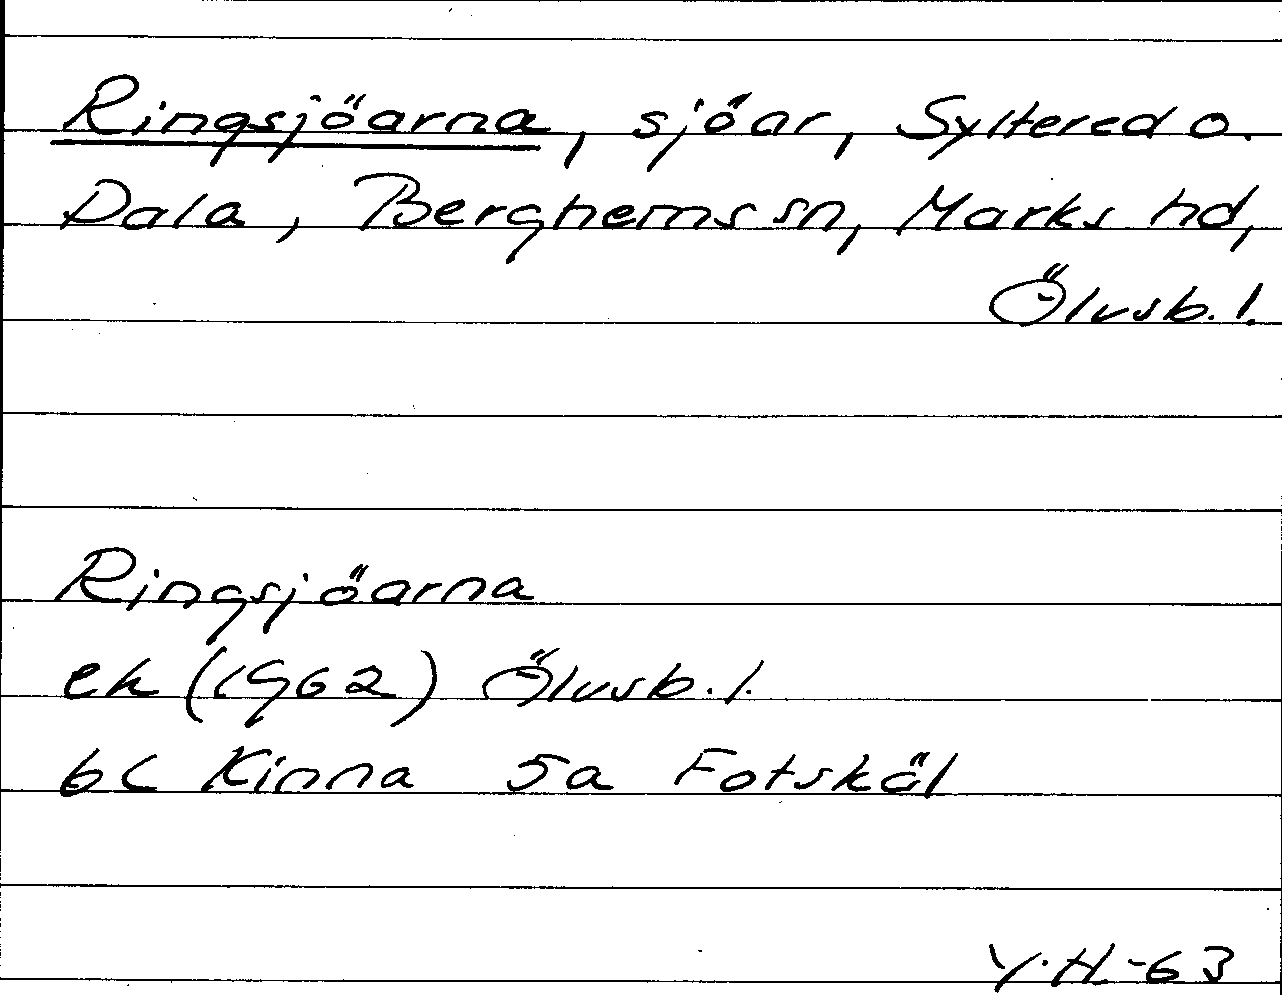 Ringsjöarna, sjöar, Syltered o.
Dala, Berghems sn, Marks hd,
Älvsb. l.
Ringsjöarna
ek (1962) Älvsb. l.
6C Kinna 5a Fotskäl
Y.H-63